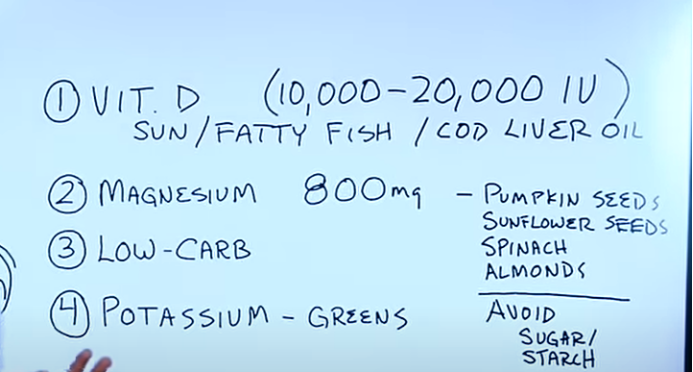 ① VIT. D (10,000-20,000 IU)
SUN/FATTY FISH/COD LIVER OIL
② MAGNESIUM 800mg - PUMPKIN SEEDS
SUNFLOWER SEEDS
③ LOW-CARB
SPINACH
ALMONDS
④ POTASSIUM - GREENS
AVOID
SUGAR/
STARCH